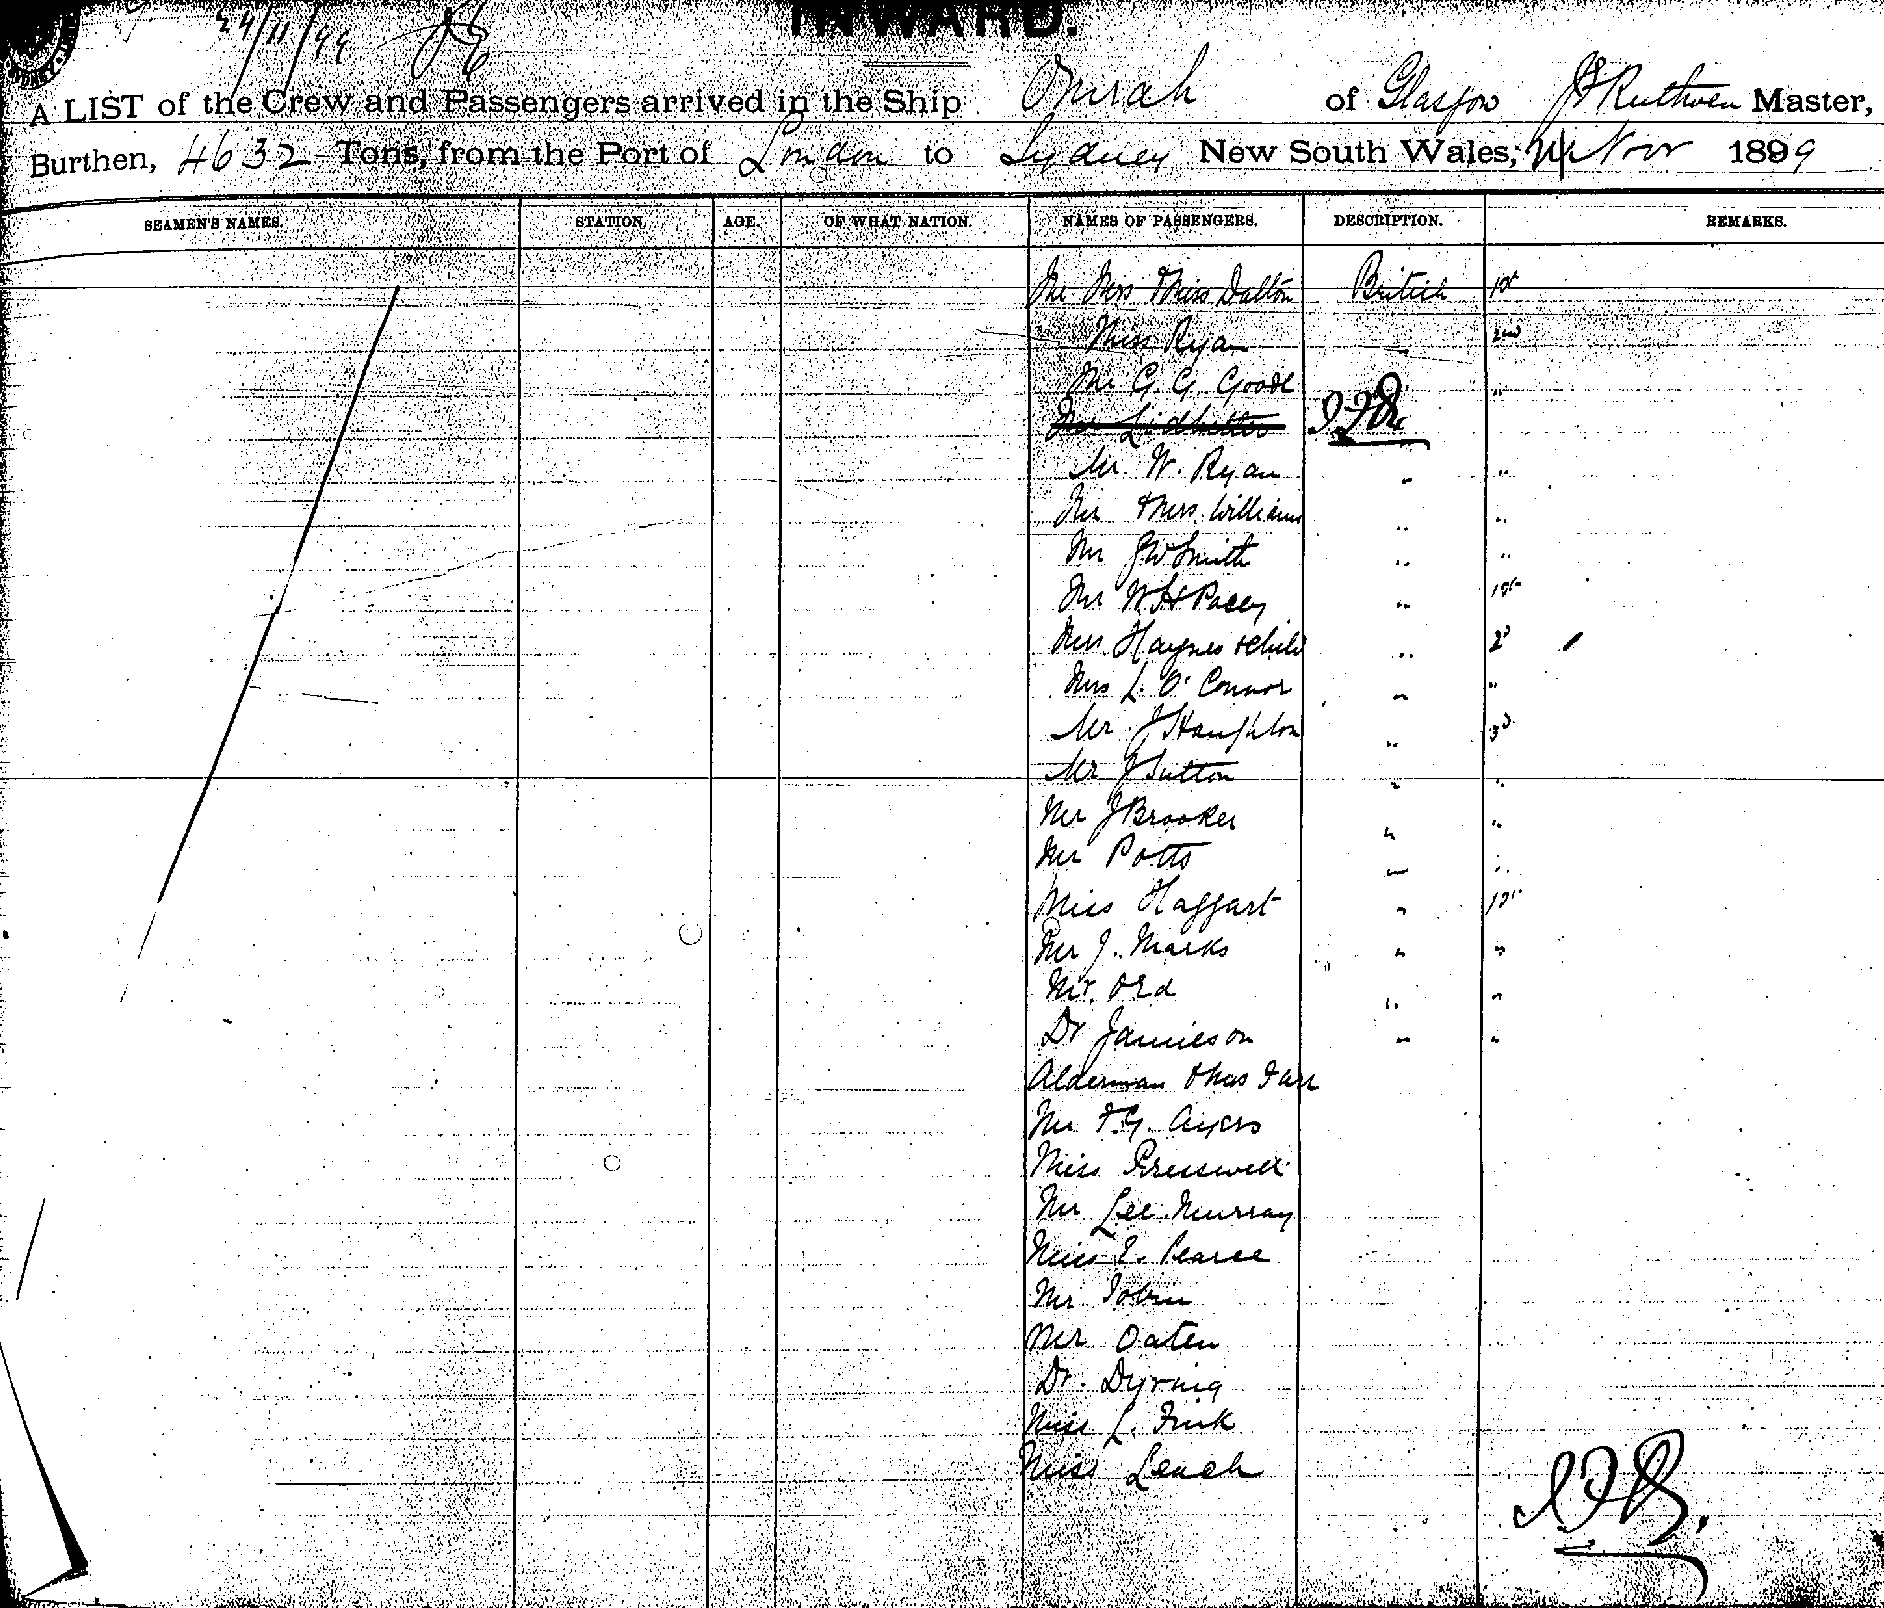 24/11/99
INWARD.
A LIST of the Crew and Passengers arrived in the Ship Omrah of Glasgow J F Ruthven Master,
Burthen, 4632 Tons, from the Port of London to Sydney New South Wales, 24 Nov 1899
SEAMEN'S NAMES. STATION. AGE. OF WHAT NATION. NAMES OF PASSENGERS. DESCRIPTION. REMARKS.
Mr Mrs & Miss Dalton British 1st
Miss Ryan " 2nd
Mr G. G. Goode "
Mr W. Ryan " "
Mr & Mrs Williams " "
Mr J W Smith " "
Mr W H Pacey " 1st
Mrs Haynes & child " 2d
Mrs L. O'Connor " "
Mr J Haughton " 3d
Mr J Sutton " "
Mr J Brooker " "
Mr Potts " "
Miss Haggart " 1st
Mr J. Marks " "
Mr. Ord " "
Dr Jamieson " "
Alderman Thas Farr
Mr F. G. Ayers
Miss
Mr Lee Murray
Miss E. Pearce
Mr Tobin
Mr Oaten
Dr. Dyring
Miss L. Frick
Miss Leach